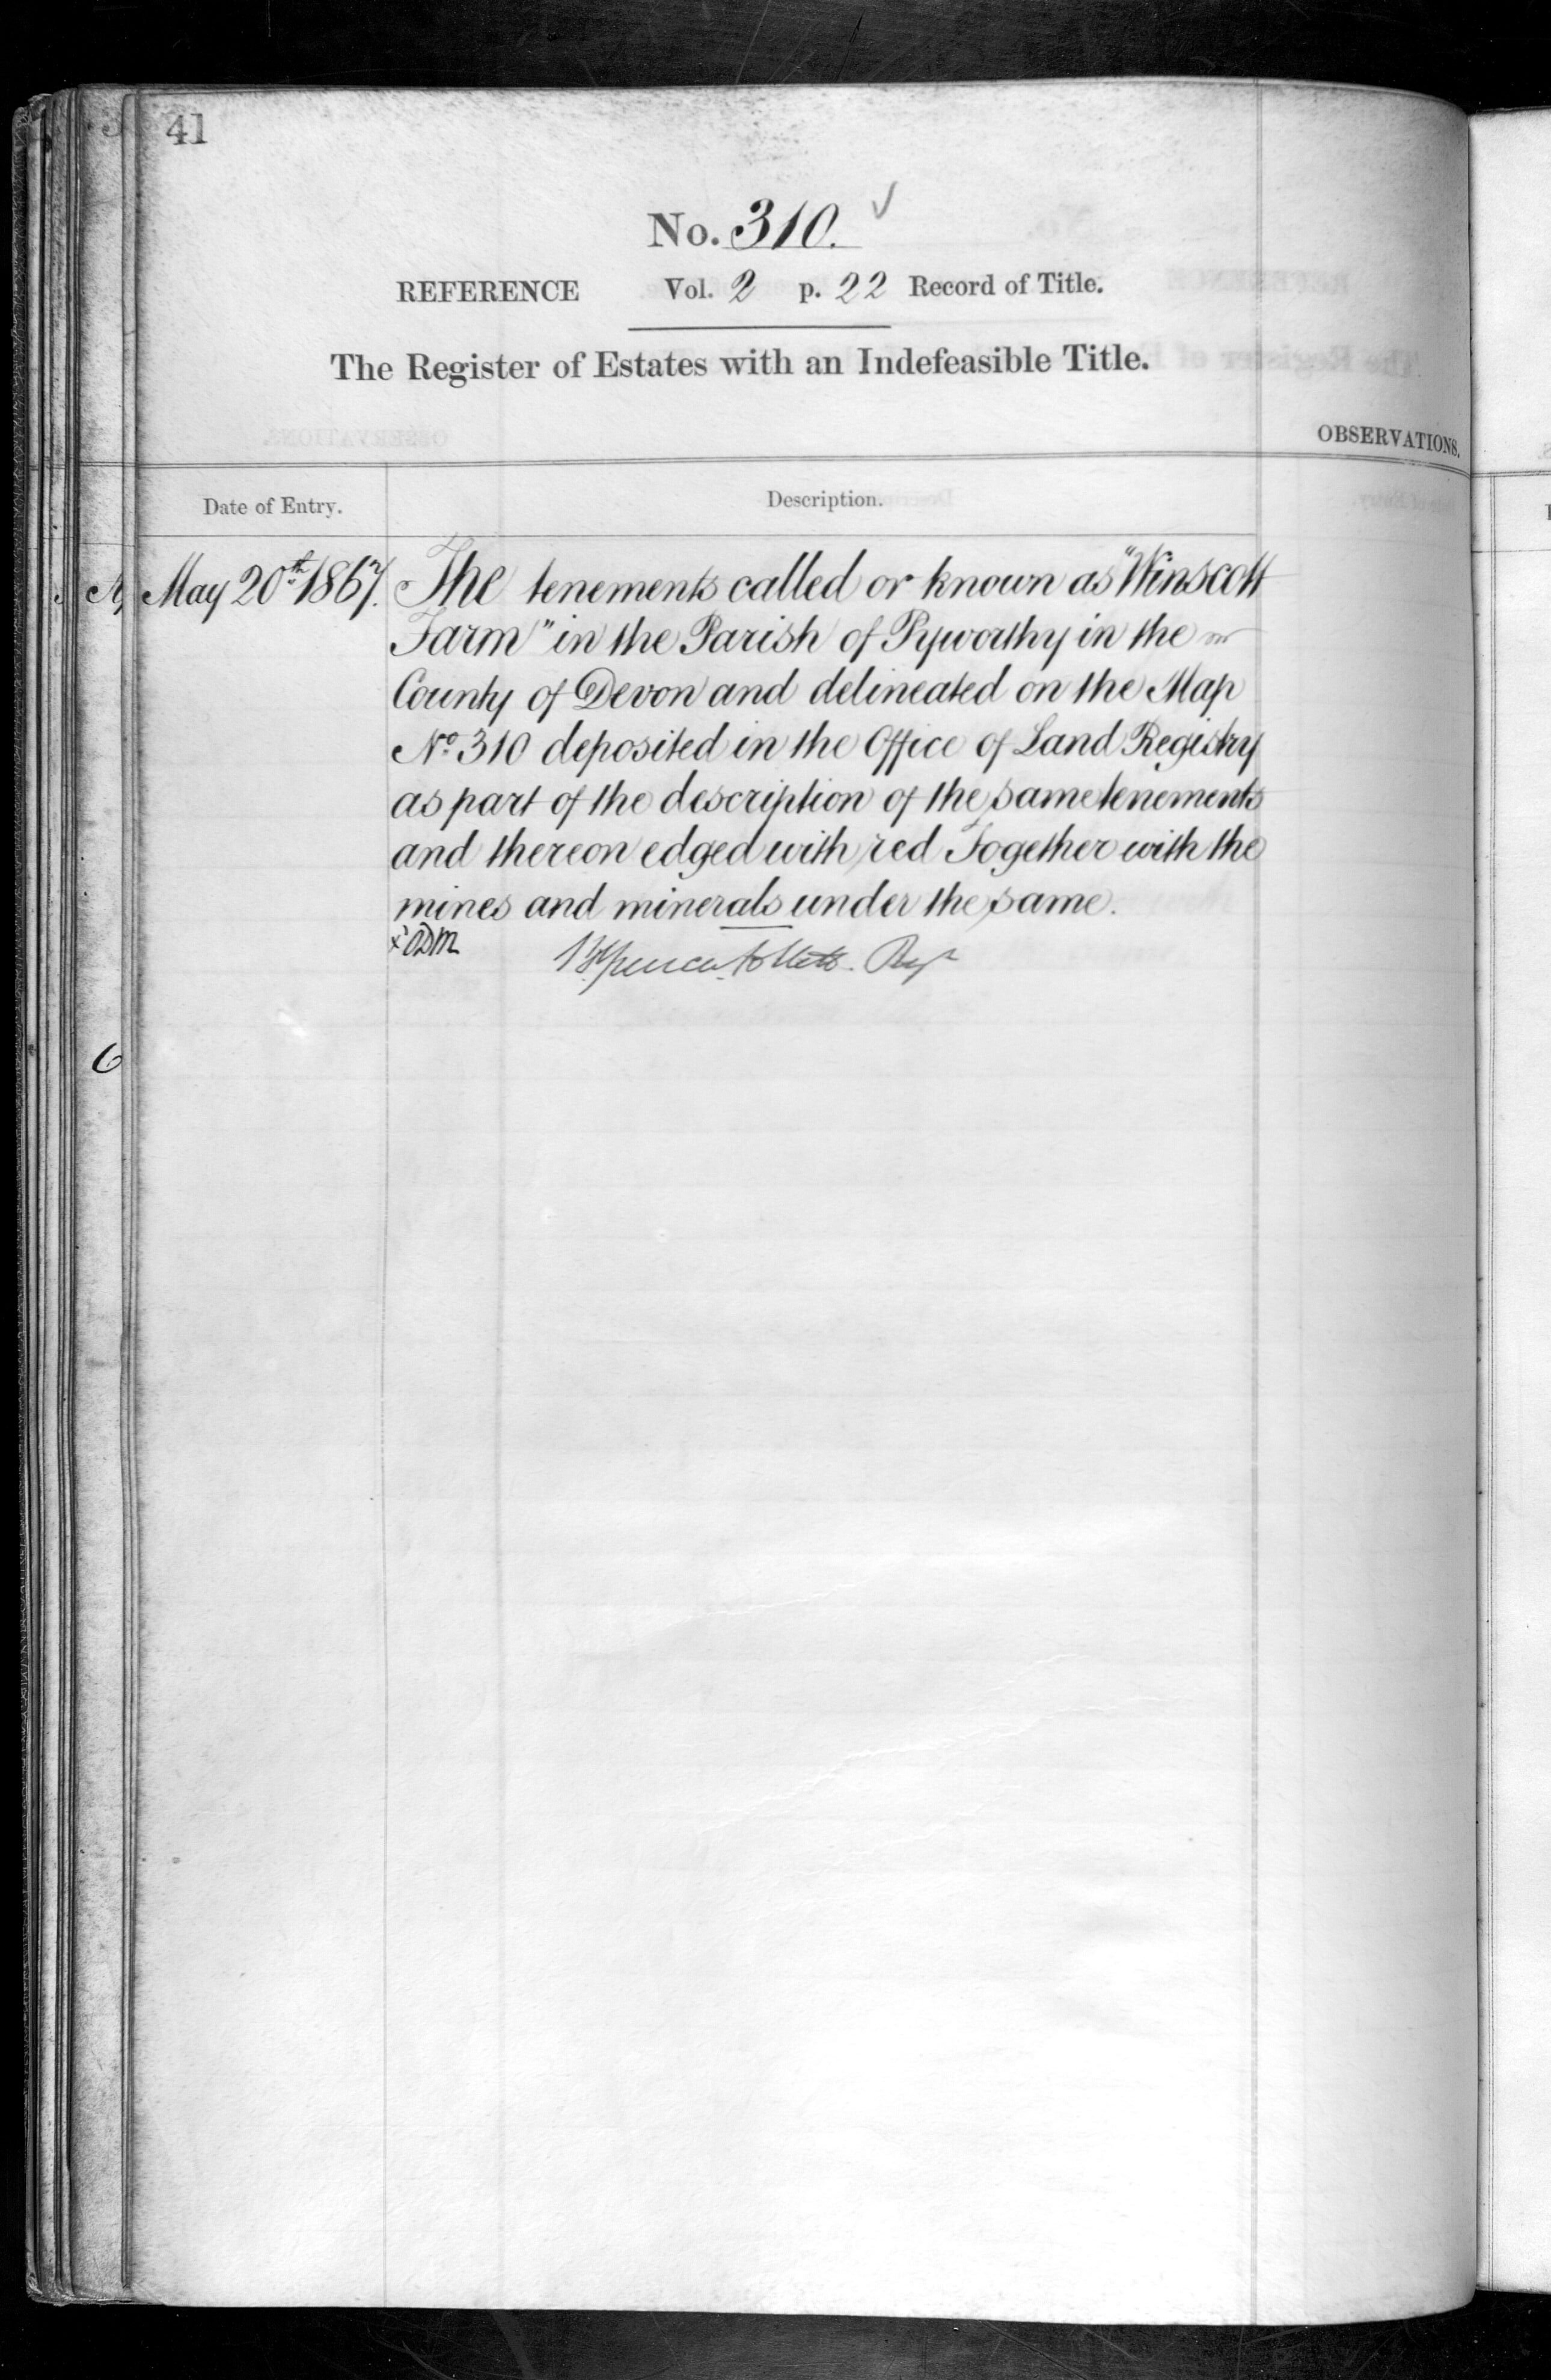 41
No. 310.
REFERENCE Vol. 2 p. 22 Record of Title.
The Register of Estates with an Indefeasible Title.
OBSERVATIONS.
Date of Entry. Description.
May 20th 1867. The tenements called or known as "Winscott
Farm" in the Parish of Pyworthy in the
County of Devon and delineated on the Map
No. 310 deposited in the Office of Land Registry
as part of the description of the same tenements
and thereon edged with red Together with the
mines and minerals under the same.
Brent Spencer Follett. Regr
6